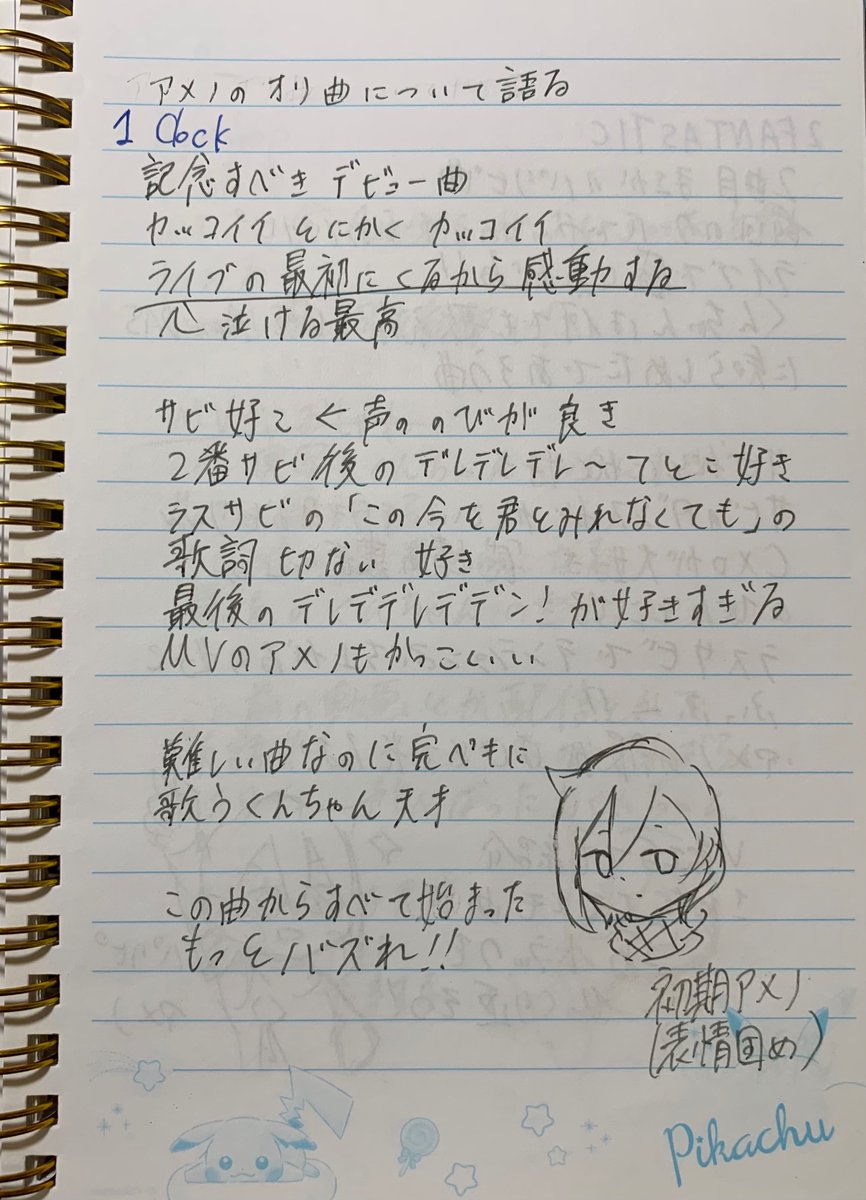 アメノのオリ曲について語る
1 Clock
記念すべきデビュー曲
カッコイイ とにかく カッコイイ
ライブの最初にくるから感動する
泣ける最高
サビ好こ ← 声ののびが良き
2番サビ後のデレデレデレ～てとこ好き
ラスサビの「この今を君とみれなくても」の
歌詞 切ない 好き
最後のデレデデレデデン!が好きすぎる
MVのアメノもかっこいい
難しい曲なのに完ペキに
歌うくんちゃん天才
この曲からすべて始まった
もっとバズれ!!
初期アメノ
(表情固め)
Pikachu